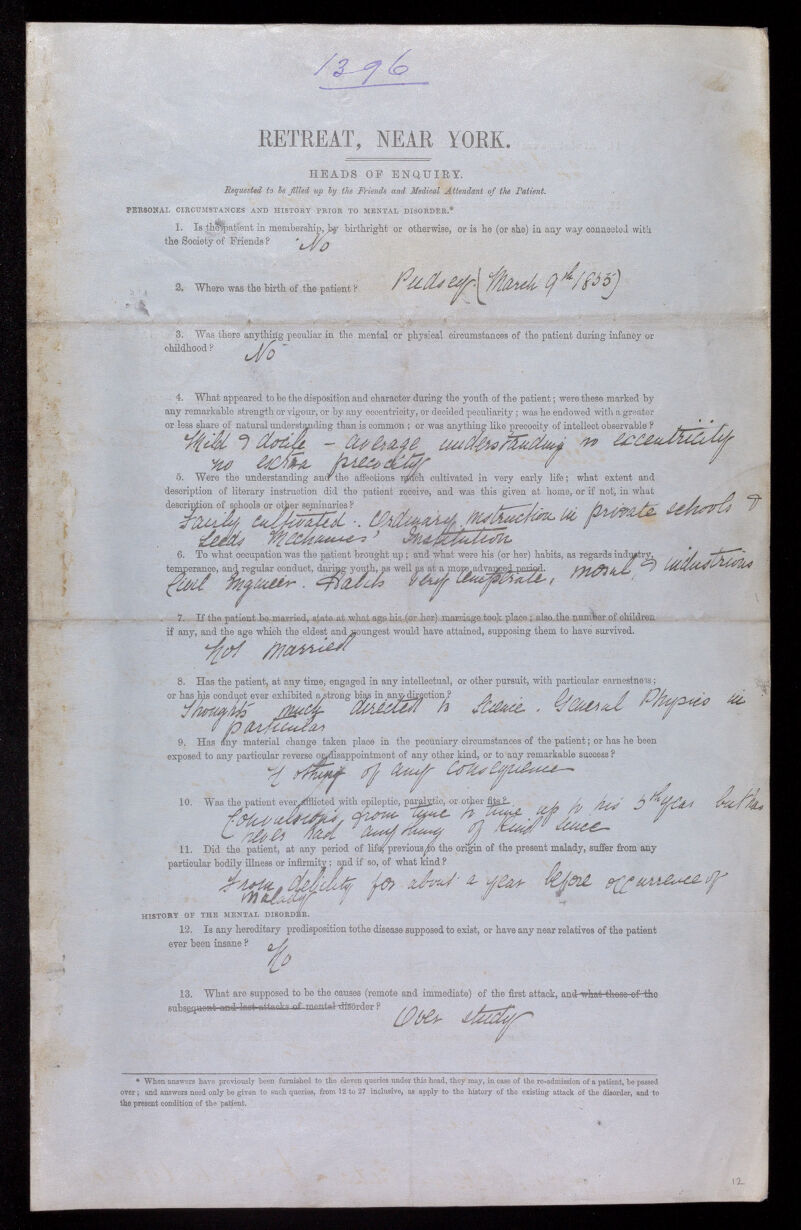 1396
RETREAT, NEAR YORK.
HEADS OF ENQUIRY.
Requested to be filled up by the Friends and Medical Attendant of the Patient.
PERSONAL CIRCUMSTANCES AND HISTORY PRIOR TO MENTAL DISORDER.*
1. Is the patient in membership, by birthright or otherwise, or is he (or she) in any way connected with
the Society of Friends? No
2. Where was the birth of the patient? Pudsey (March 9th 1855)
3. Was there anything peculiar in the mental or physical circumstances of the patient during infancy or
childhood? No
4. What appeared to be the disposition and character during the youth of the patient; were these marked by
any remarkable strength or vigour, or by any eccentricity, or decided peculiarity; was he endowed with a greater
or less share of natural understanding than is common; or was anything like precocity of intellect observable?
Mild & docile - average understanding no eccentricity
no extra precocity
5. Were the understanding and the affections much cultivated in very early life; what extent and
description of literary instruction did the patient receive, and was this given at home, or if not, in what
description of schools or other seminaries?
Fairly cultivated. Ordinary instruction in private schools &
Leeds Mechanics' Institution
6. To what occupation was the patient brought up; and what were his (or her) habits, as regards industry,
temperance, and regular conduct, during youth, as well as at a more advanced period.
Civil Engineer. Habits very temperate, moral & industrious
7. If the patient be married, state at what age his (or her) marriage took place; also the number of children
if any, and the age which the eldest and youngest would have attained, supposing them to have survived.
Not married
8. Has the patient, at any time, engaged in any intellectual, or other pursuit, with particular earnestness;
or has his conduct ever exhibited a strong bias in any direction?
Thoughts much directed to Science. General Physics in
particular
9. Has any material change taken place in the pecuniary circumstances of the patient; or has he been
exposed to any particular reverse or disappointment of any other kind, or to any remarkable success?
Nothing of any consequence
10. Was the patient ever afflicted with epileptic, paralytic, or other fits?
Convulsions from time to time up to his 5th year but has
never had anything of kind since
11. Did the patient, at any period of life, previous to the origin of the present malady, suffer from any
particular bodily illness or infirmity; and if so, of what kind?
From debility for about a year before occurrence of
malady
HISTORY OF THE MENTAL DISORDER.
12. Is any hereditary predisposition tothe disease supposed to exist, or have any near relatives of the patient
ever been insane? No
13. What are supposed to be the causes (remote and immediate) of the first attack, and what those of the
subsequent and last attacks of mental disorder? Over study
* When answers have previously been furnished to the eleven queries under this head, they may, in case of the re-admission of a patient, be passed
over; and answers need only be given to such queries, from 12 to 27 inclusive, as apply to the history of the existing attack of the disorder, and to
the present condition of the patient.
12